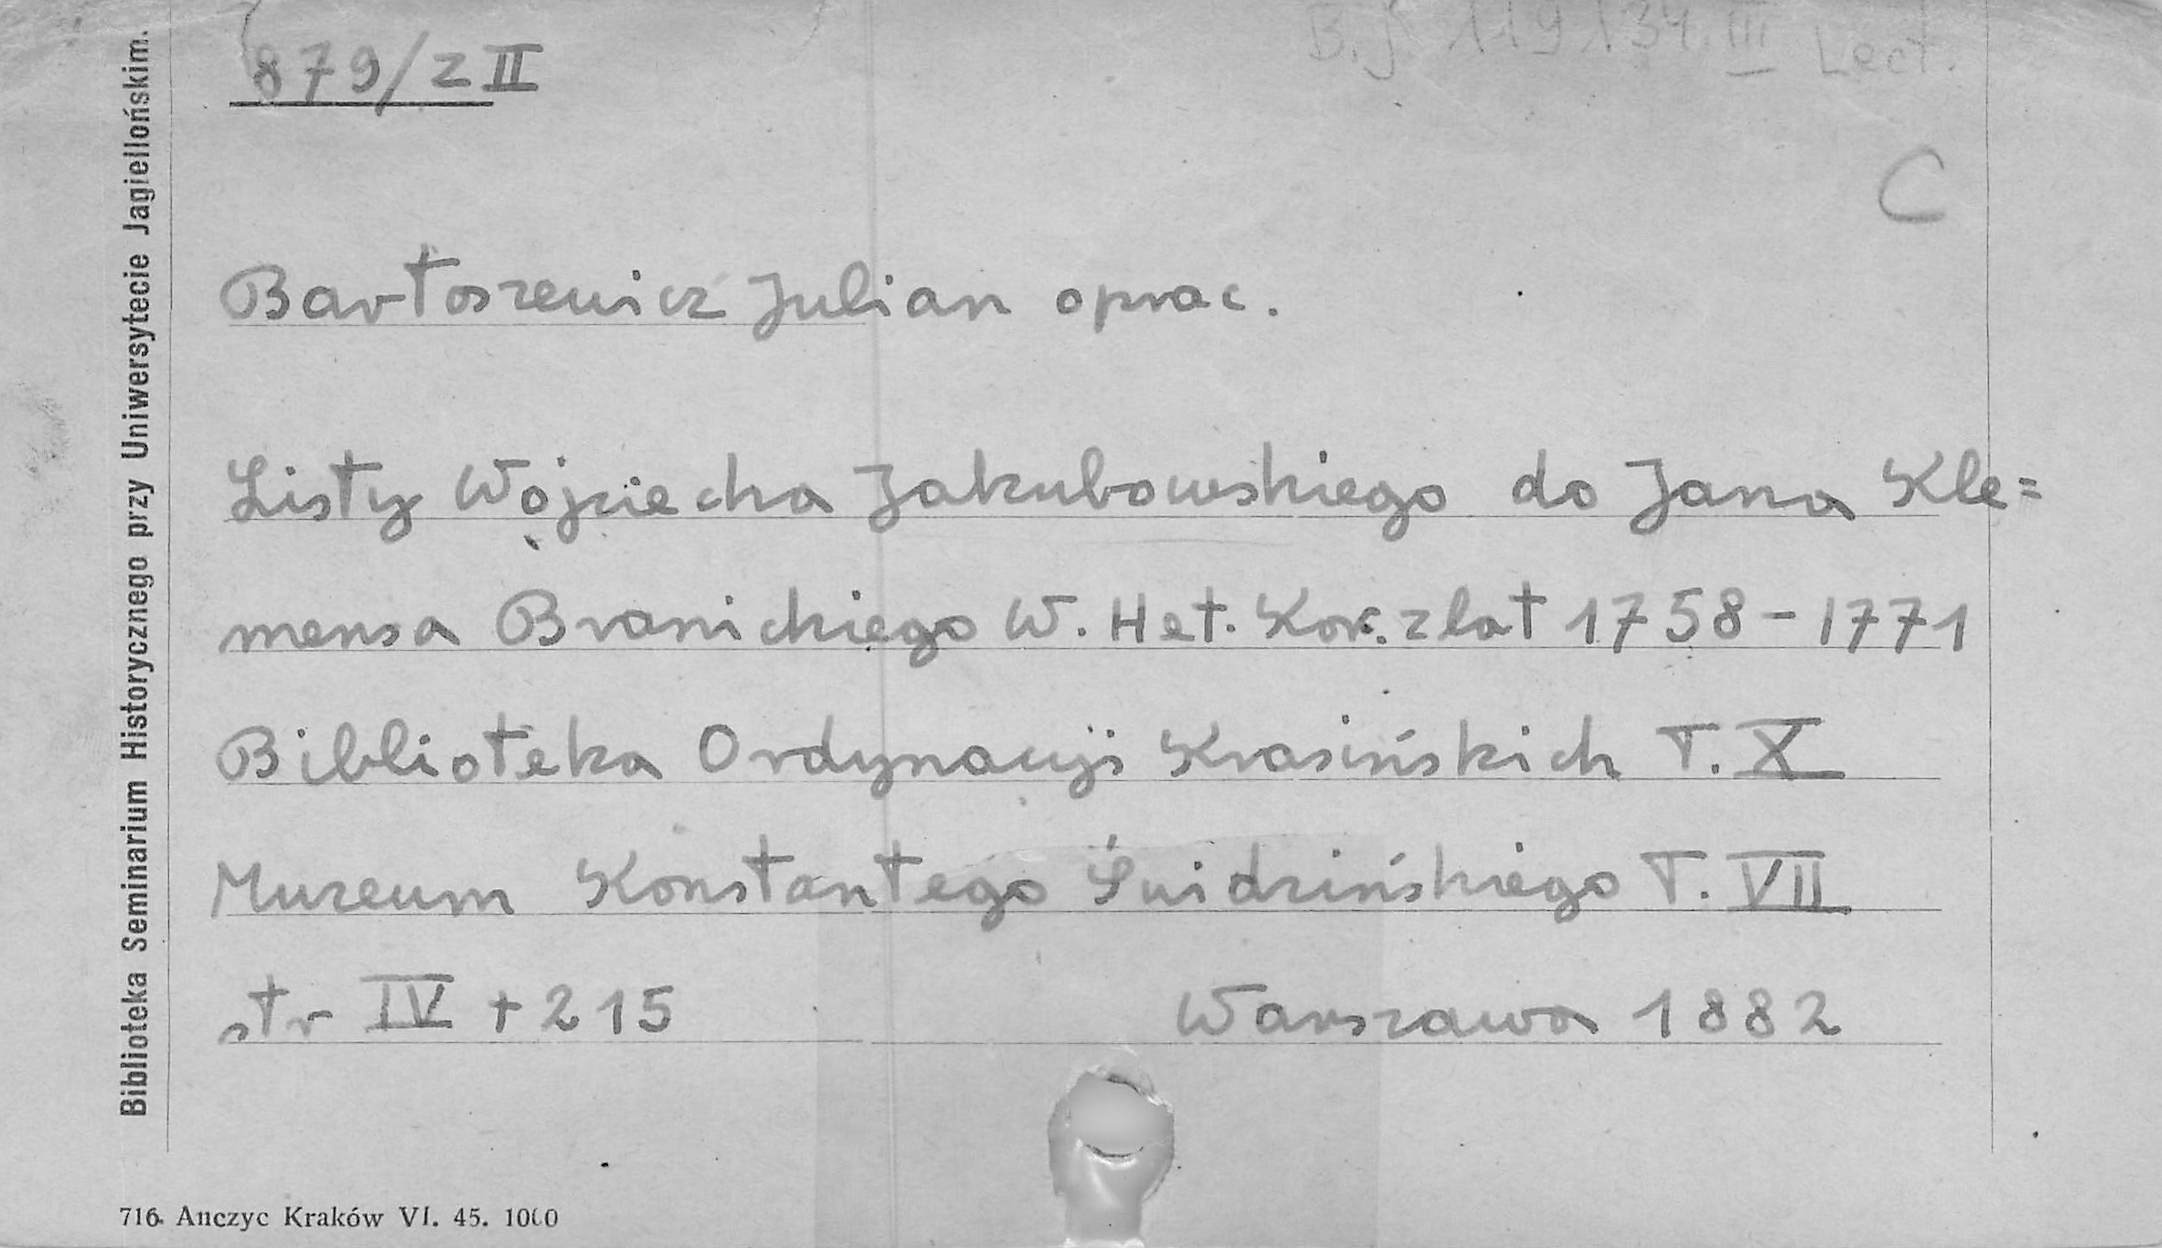 879/Z II
B.J. 119134 III Lect.
C
Bartoszewicz Julian oprac.
Listy Wojciecha Jakubowskiego do Jana Kle=
mensa Branickiego W. Het. Kor. z lat 1758-1771
Biblioteka Ordynacyji Krasińskich T. X
Muzeum Konstantego Świdzińskiego T. VII
str IV + 215 Warszawa 1882
Biblioteka Seminarium Historycznego przy Uniwersytecie Jagiellońskim.
716. Anczyc Kraków VI. 45. 1000